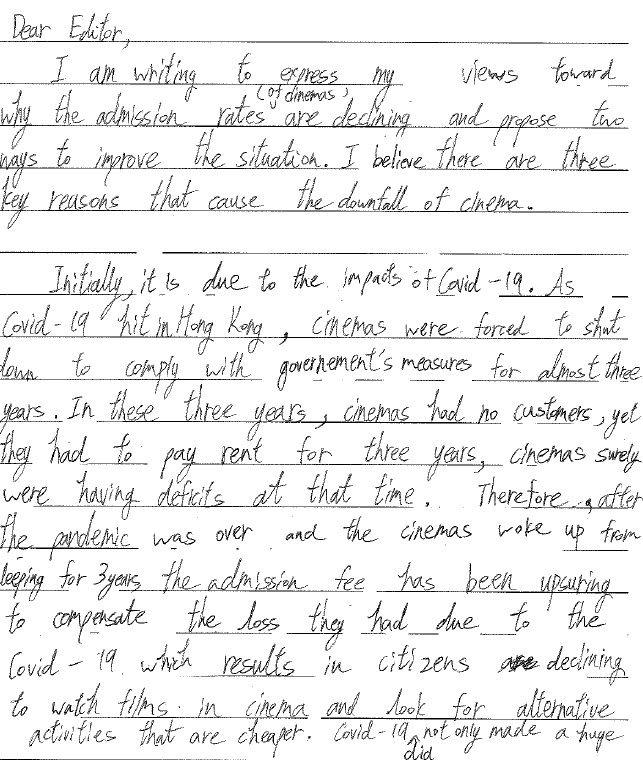 Dear Editor,
I am writing to express my views toward
why the admission rates (of cinemas) are declining and propose two
ways to improve the situation. I believe there are three
key reasons that cause the downfall of cinema.
Initially, it is due to the impacts of Covid-19. As
Covid-19 hit in Hong Kong, cinemas were forced to shut
down to comply with governement's measures for almost three
years. In these three years, cinemas had no customers, yet
they had to pay rent for three years, cinemas surely
were having deficits at that time. Therefore, after
the pandemic was over and the cinemas woke up from
leeping for 3 years the admission fee has been upsuring
to compensate the loss they had due to the
Covid-19 which results in citizens declining
to watch films in cinema and look for alternative
activities that are cheaper. Covid-19 did not only made a huge